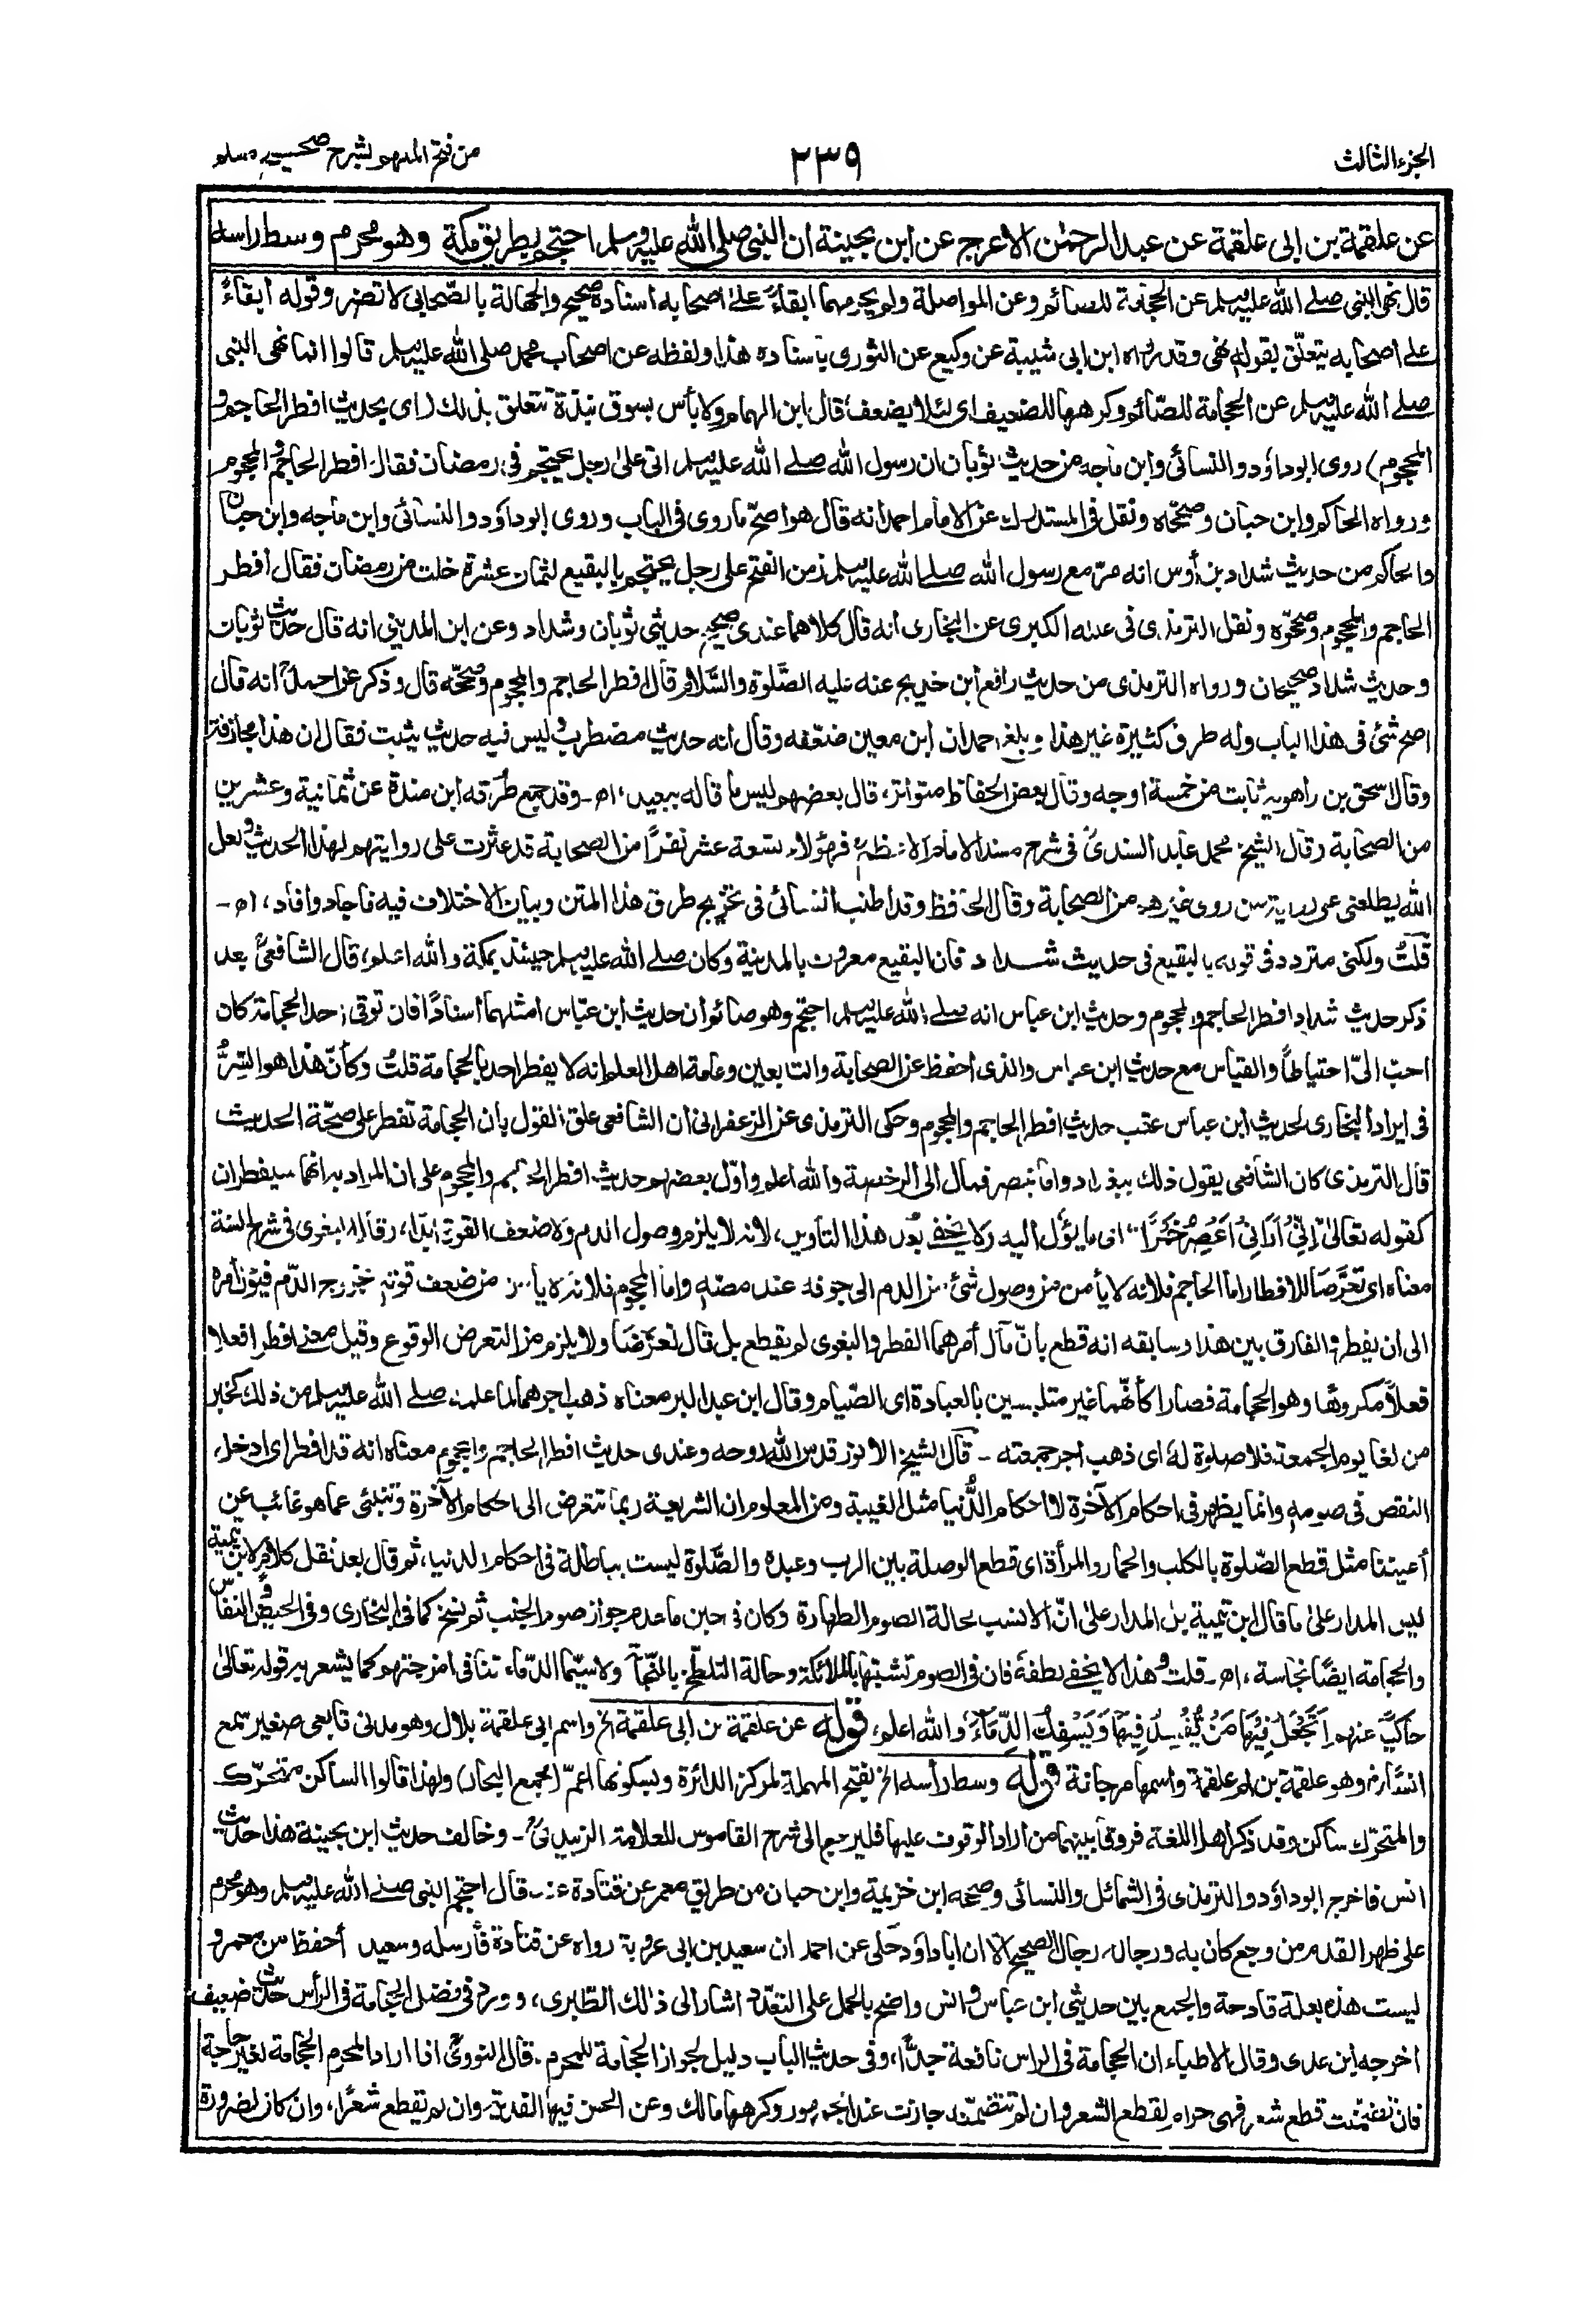 الجزء الثالث
٢٣٩
من فتح الملهم بشرح صحيح مسلم
عن علقمة بن ابى علقمة عن عبد الرحمٰن الاعرج عن ابن بحينة ان النبي صلى الله عليه وسلم احتجم بطريق مكة وهو محرم وسط راسه
قال نهى النبي صلے الله عليه وسلم عن الحجامة للصائم وعن المواصلة ولم يحرمهما ابقاءً علىٰ اصحابه اسناده صحيح والجهالة بالصّحابى لا تضر وقوله ابقاءً
على اصحابه يتعلّق بقوله نهى وقد رواه ابن ابى شيبة عن وكيع عن الثورى باسناده هذا ولفظه عن اصحاب محمد صلى الله عليه وسلم قالوا انما نهى النبى
صلے الله عليه وسلم عن الحجامة للصّائم وكرهها للضعيف اى لئلا يضعف، قال ابن الهمام ولا بأس بسوق نبذة تتعلق بذلك (اى بحديث افطر الحاجم و
المحجوم) روى ابو داؤد والنسائى وابن ماجه من حديث ثوبان ان رسول الله صلے الله عليه وسلم اتى علىٰ رجل يحتجم فى رمضان فقال افطر الحاجم والمحجوم
ورواه الحاكم وابن حبان وصححاه ونقل فى المستدرك عن الامام احمد انه قال هو اصحّ ما روى فى الباب وروى ابو داؤد والنسائى وابن ماجه وابن حبان
والحاكم من حديث شداد بن أوس انه مرّ مع رسول الله صلے الله عليه وسلم زمن الفتح على رجل يحتجم بالبقيع لثمان عشرة خلت من رمضان فقال أفطر
الحاجم والمحجوم وصححوه ونقل الترمذى فى علله الكبرى عن البخارى انه قال كلاهما عندى صحيح حديثى ثوبان وشداد وعن ابن المدينى انه قال حديث ثوبان
وحديث شداد صحيحان ورواه الترمذى من حديث رافع ابن خديج عنه عليه الصّلوة والسّلام قال افطر الحاجم والمحجوم وصححه قال وذكر عن احمدؒ انه قال
اصح شئ فى هذا الباب وله طرق كثيرة غير هذا وبلغ احمد ان ابن معين ضعّفه وقال انه حديث مضطرب وليس فيه حديث يثبت فقال ان هذا مجازفة
وقال اسحق بن راهويه ثابت من خمسة اوجه وقال بعض الحفاظ متواتر، قال بعضهم ليس ما قاله ببعيد، اه - وقد جمع طرقه ابن مندة عن ثمانية وعشرين
من الصحابة وقال الشيخ محمد عابد السندىؒ فى شرح مسند الامام الاعظمؒ فهؤلاء تسعة عشر نفرًا من الصحابة قد عثرت على روايتهم لهذا الحديث ولعل
الله يطلعنى على رواية من روى غيرهم من الصحابة وقال الحافظ وقد اطنب النسائى فى تخريج طرق هذا المتن وبيان الاختلاف فيه فاجاد وافاد، اه -
قلتُ ولكنى متردد فى قوله بالبقيع فى حديث شداد فان البقيع معروف بالمدينة وكان صلے الله عليه وسلم حينئذ بمكة والله اعلم، قال الشافعىؒ بعد
ذكر حديث شداد افطر الحاجم والمحجوم وحديث ابن عباس انه صلے الله عليه وسلم احتجم وهو صائم وأن حديث ابن عبّاس أمثلهما أسنادًا فان توقى احد الحجامة كان
احبّ الىّ احتياطًا والقياس مع حديث ابن عباس والذى أحفظ عن الصحابة والتابعين وعامة اهل العلم انه لا يفطر احد بالحجامة قلتُ وكأنّ هذا هو السّرُّ
فى ايراد البخارى لحديث ابن عباس عقب حديث افطر الحاجم والمحجوم وحكى الترمذى عن الزعفرانى ان الشافعى علق القول بان الحجامة تفطر على صحّة الحديث
قال الترمذى كان الشافعى يقول ذلك ببغداد واما بمصر فمال الى الرخصة والله اعلم واوّل بعضهم حديث افطر الحاجم والمحجوم على ان المراد به انهما سيفطران
كقوله تعالىٰ اِنِّىْ اَرَانِىْ اَعْصِرُ خَمْرًا" اى ما يؤل اليه ولا يخفى بُعد هذا التأويل، لانه لا يلزم وصول الدم ولا ضعف القوة ابدًا، وقال البغوى فى شرح السنة
معناه اى تعرّضا للافطار اما الحاجم فلأنه لا يأمن من وصول شئ من الدم الى جوفه عند مصّهٖ واما المحجوم فلانه لا يأمن من ضعف قوته بخروج الدّم فيؤل أمره
الى ان يفطر، والفارق بين هذا وسابقه انه قطع بانّ مآل أمرهما الفطر والبغوى لم يقطع بل قال تعرّضا ولا يلزم من التعرض الوقوع وقيل معنى افطر افعلا
فعلاً مكروهًا وهو الحجامة فصارا كأنّهما غير متلبسين بالعبادة اى الصّيام وقال ابن عبد البر معناه ذهب اجرهما لما علمه صلے الله عليه وسلم من ذلك كخبر
من لغا يوم الجمعة فلا صلوة لهٗ اى ذهب اجر جمعته - قال الشيخ الانور قدس الله روحه وعندى حديث افطر الحاجم والمحجوم معناه انه قد افطر اى ادخل
النقص فى صومهٖ وانما يظهر فى احكام الآخرة لا احكام الدُّنيا مثل الغيبة ومن المعلوم ان الشريعة ربما تتعرض الى احكام الآخرة وتنبئ عما هو غائب عن
أعيننا مثل قطع الصّلوة بالكلب والحمار والمرأة اى قطع الوصلة بين الرب وعبده والصّلوة ليست بباطلة فى احكام الدنيا، ثم قال بعد نقل كلام لابن تيمية
ليس المدار علىٰ ما قال ابن تيمية بل المدار علىٰ انّ الانسب بحالة الصوم الطهارة وكان فى حين ما عدم جواز صوم الجنب ثم نسخ كما فى البخارى وفى الحيض والنفاس
والحجامة ايضًا نجاسة، اه - قلت وهذا لا يخفى لطفه فان فى الصوم تشبّها بالملائكة وحالة التلطّخ بالنّجاسات ولا سيّما الدّماء تنافى امزجتهم كما يشعر به قوله تعالىٰ
حاكيًا عنهم اَتَجْعَلُ فِيْهَا مَنْ يُّفْسِدُ فِيْهَا وَيَسْفِكُ الدِّمَاءَ، والله اعلم، قوله عن علقمة بن ابى علقمة الخ واسم ابى علقمة بلال وهو مدنى تابعى صغير سمع
انسًا وهو علقمة بن ام علقمة واسمها مرجانة قوله وسط رأسه الخ بفتح المهملة لمركز الدائرة وبسكونها اعمّ (مجمع البحار) ولهذا قالوا الساكن متحرّك
والمتحرّك ساكن وقد ذكر اهل اللغة فروقا بينهما من اراد الوقوف عليها فليرجع الى شرح القاموس للعلامة الزبيدىؒ - وخالف حديث ابن بحينة هذا حديث
انس فاخرج ابو داؤد والترمذى فى الشمائل والنسائى وصححه ابن خزيمة وابن حبان من طريق معمر عن قتادة عنه قال احتجم النبى صلے الله عليه وسلم وهو محرم
على ظهر القدم من وجع كان به ورجاله رجال الصحيح الا ان ابا داؤد حكى عن احمد ان سعيد بن ابى عروبة رواه عن قتادة فأرسله وسعيد أحفظ من معمر و
ليست هذه بعلة قادحة والجمع بين حديثى ابن عباس وانس واضح بالحمل على التعدّد اشار الى ذلك الطبرى، وورد فى فضل الحجامة فى الرأس حديث ضعيف
اخرجه ابن عدى وقال الاطباء ان الحجامة فى الراس نافعة جدًّا، وفى حديث الباب دليل لجواز الحجامة للمحرم - قال النووىؒ اذا اراد المحرم الحجامة لغير حاجة
فان تضمّنت قطع شعر فهى حرام لقطع الشعر وان لم تتضمنه جازت عند الجمهور وكرهها مالك وعن الحسن فيها الفدية وان لم يقطع شعرًا، وان كان لضرورة